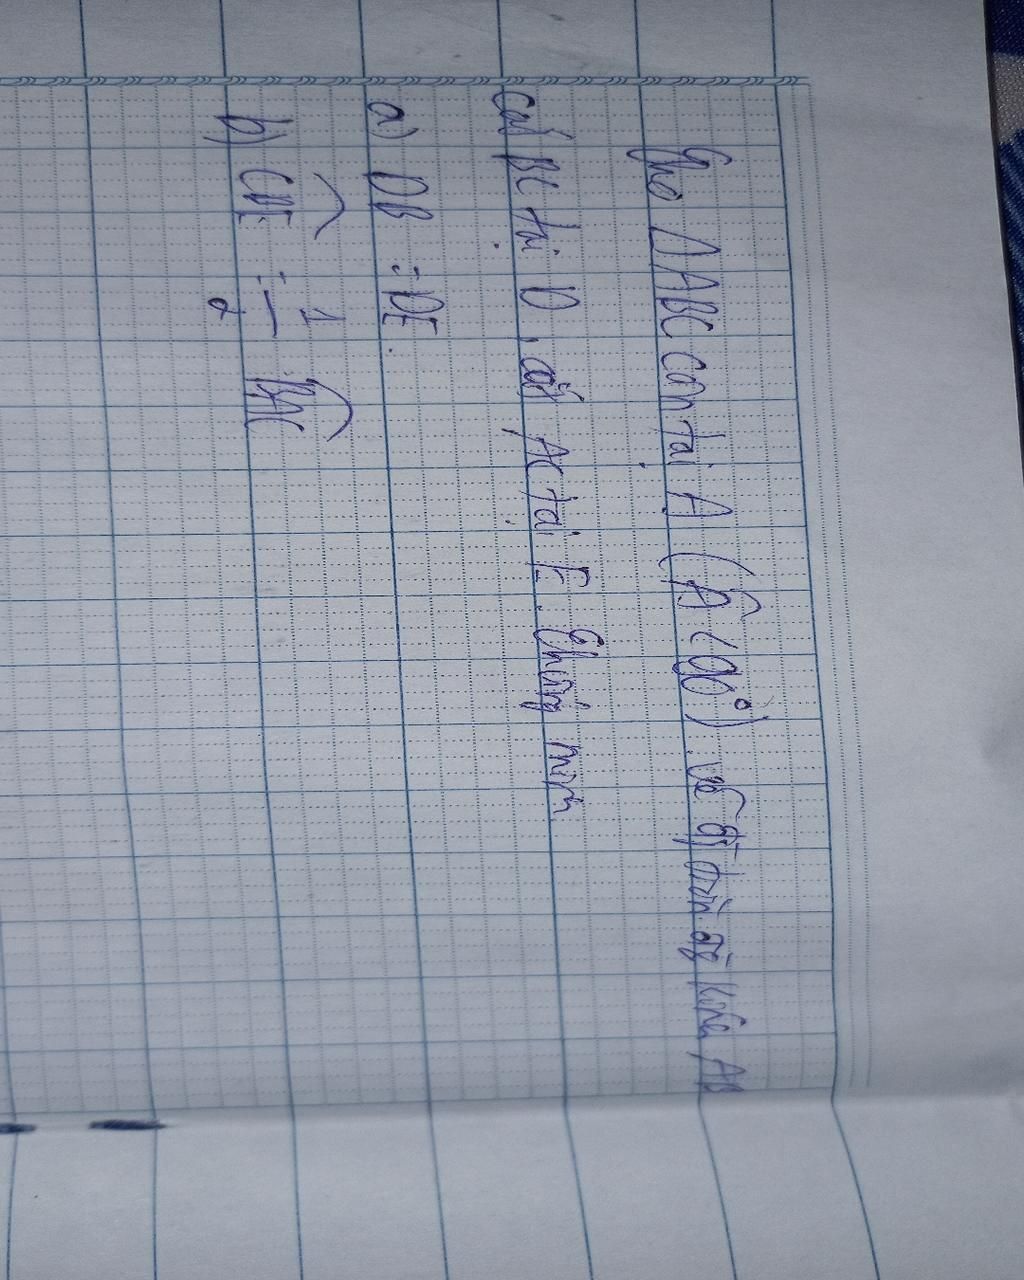 Cho ΔABC cân tại A (Â < 90°). vẽ đg tròn đg kính AB
cắt BC tại D, cắt AC tại E. Chứng minh
a) DB = DE.
b) \widehat{CBE} = \frac{1}{2} \widehat{BAC}